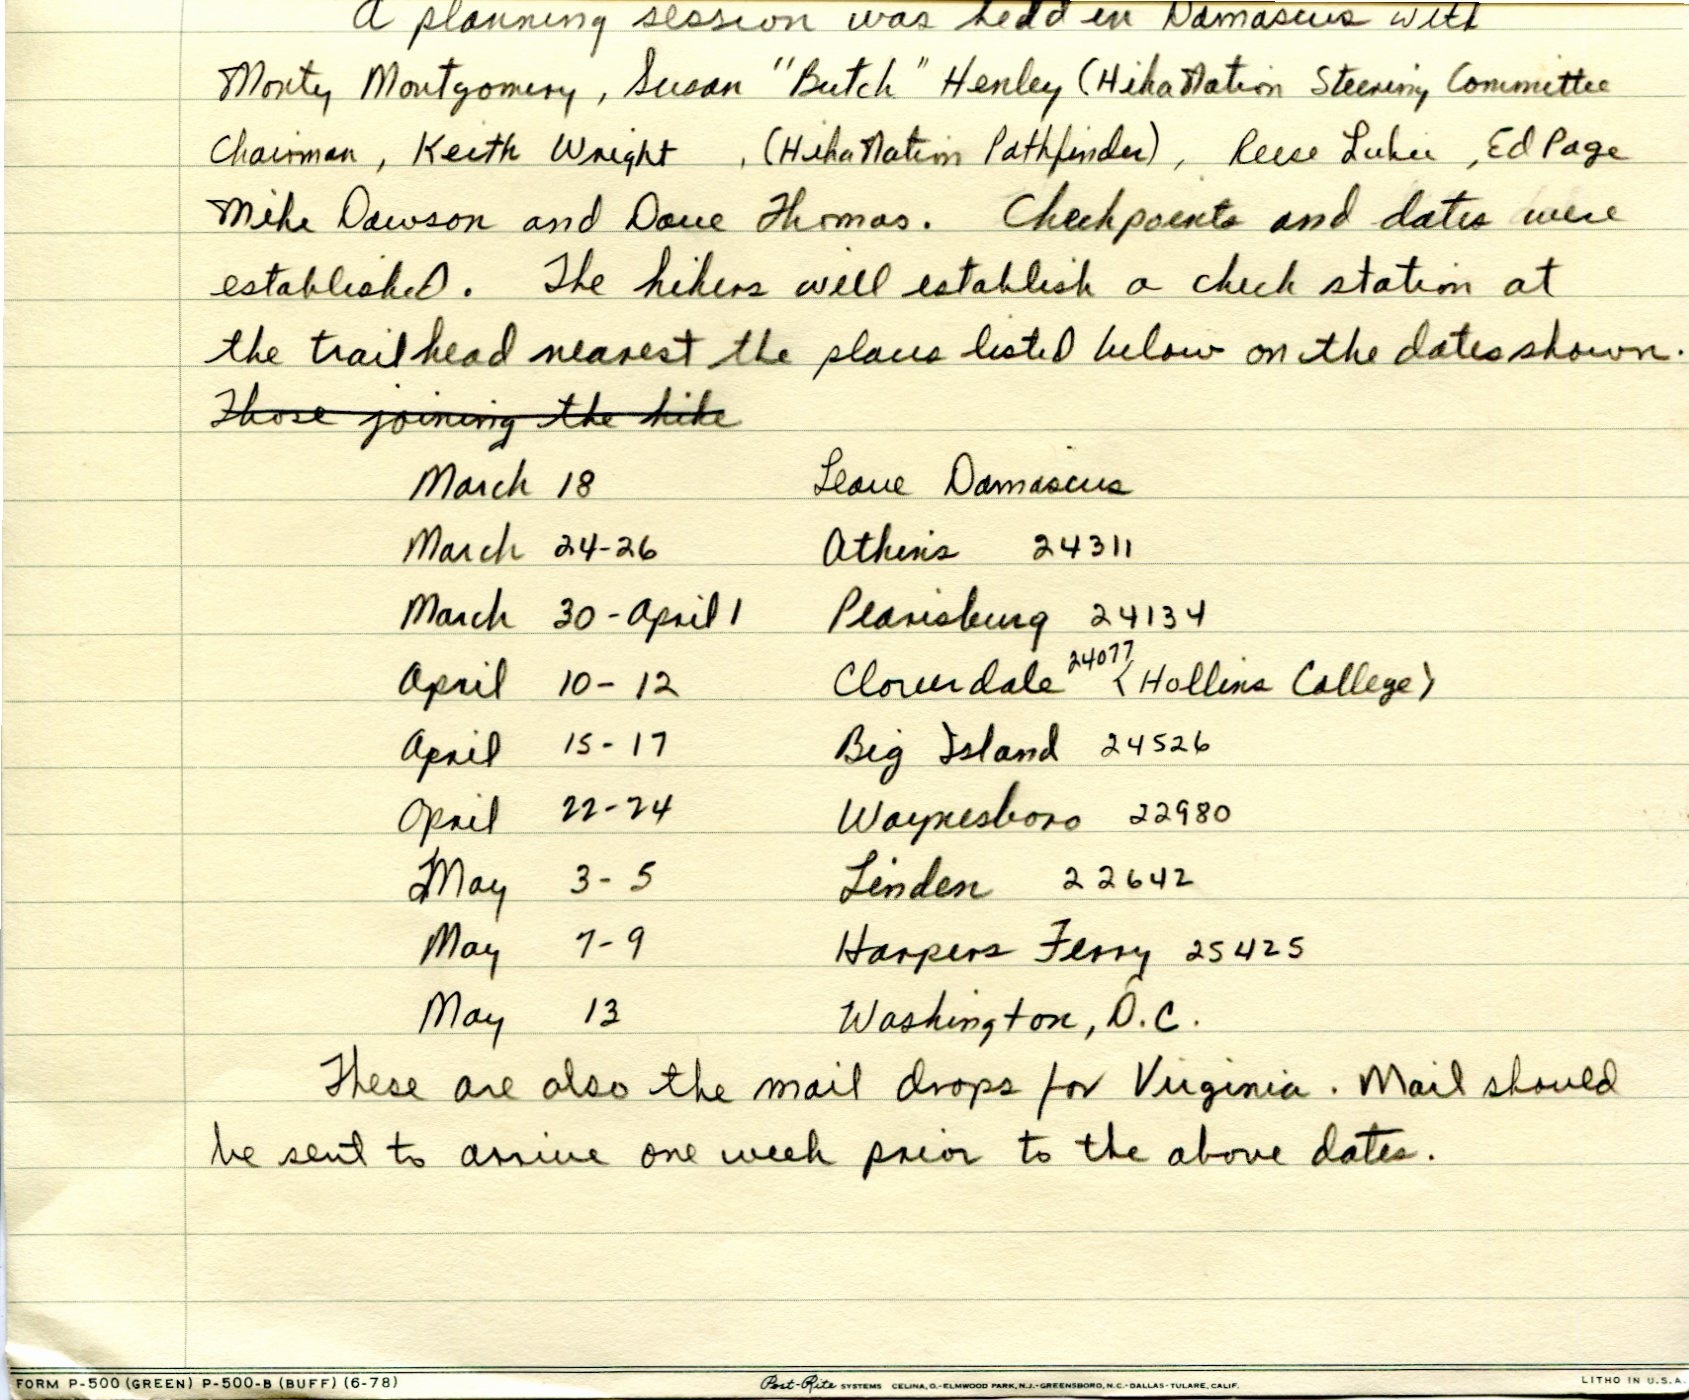 A planning session was held in Damascus with
Monty Montgomery, Susan "Butch" Henley (HikaNation Steering Committee
Chairman, Keith Wright , (HikaNation Pathfinder), Reese Lukei , Ed Page
Mike Dawson and Dave Thomas. Checkpoints and dates were
established. The hikers will establish a check station at
the trailhead nearest the places listed below on the dates shown.
Those joining the hike
March 18 Leave Damascus
March 24-26 Athens 24311
March 30-April 1 Pearisburg 24134
April 10-12 Cloverdale 24077 (Hollins College)
April 15-17 Big Island 24526
April 22-24 Waynesboro 22980
May 3-5 Linden 22642
May 7-9 Harpers Ferry 25425
May 13 Washington, D.C.
These are also the mail drops for Virginia. Mail should
be sent to arrive one week prior to the above dates.
FORM P-500 (GREEN) P-500-B (BUFF) (6-78) Post-Rite SYSTEMS CELINA, O.-ELMWOOD PARK, N.J.-GREENSBORO, N.C.-DALLAS-TULARE, CALIF. LITHO IN U.S.A.